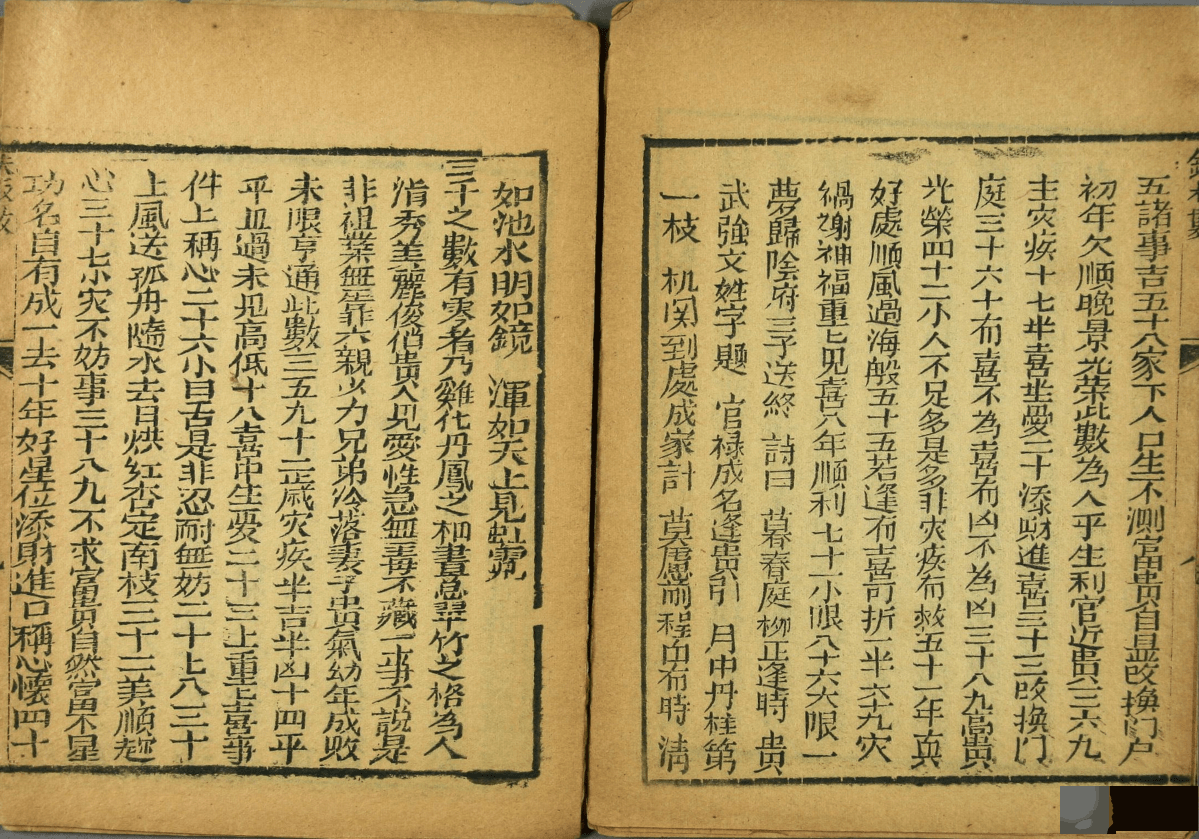 五諸事吉五十八家下人口生不測富貴自昷改換门户
初年欠順晚景光荣此數為人平生利官近贵三六九
主灾疾十七半喜半憂二十添财進喜三十三改換门
庭三十六十有喜不為喜有凶不為凶三十八九高贵
光榮四十二小人不足多是多非灾疾有救五十一年真
好處順風過海般五十五若逢有喜可折一半六九灾
禍谢神福重七見喜八年順利七十一小限八十六大限一
夢歸陰府三子送終 詩曰 暮春庭柳正逢時 贵
武強文姓字題 官禄成名逢贵引 月中丹桂第
一枝 机関到處成家計 莫愿前程由有時 清
如池水明如鏡 渾如天上見虹霓
三千之數有雲者乃雞化丹鳳之 晝息翠竹之格為人
清秀美麗俊俏贵人見愛性急無毒不藏一事不說是
非祖業無靠六親少力兄弟冷落妻子贵氣幼年成败
未限亨通此數三五九十二正歲灾疾半吉半凶十四平
平且過未見高低十八喜中生憂二十三上重七喜事
件上稱心二十六小口舌是非忍耐無妨二十七八三十
上風送孤舟隨水去日烘红杏定南枝三十二美順趂
心三十七小灾不妨事三十八九不求富贵自然富不星
功名自有成一去十年好星位添財進口稱心懷四十